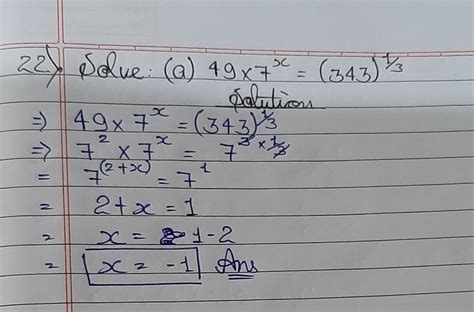 22) Solve: (a) 49 × 7^x = (343)^1/3
Solution
⇒ 49 × 7^x = (343)^1/3
⇒ 7^2 × 7^x = 7^3 × 1/3
= 7^(2+x) = 7^1
= 2 + x = 1
= x = 1 - 2
= x = -1 Ans